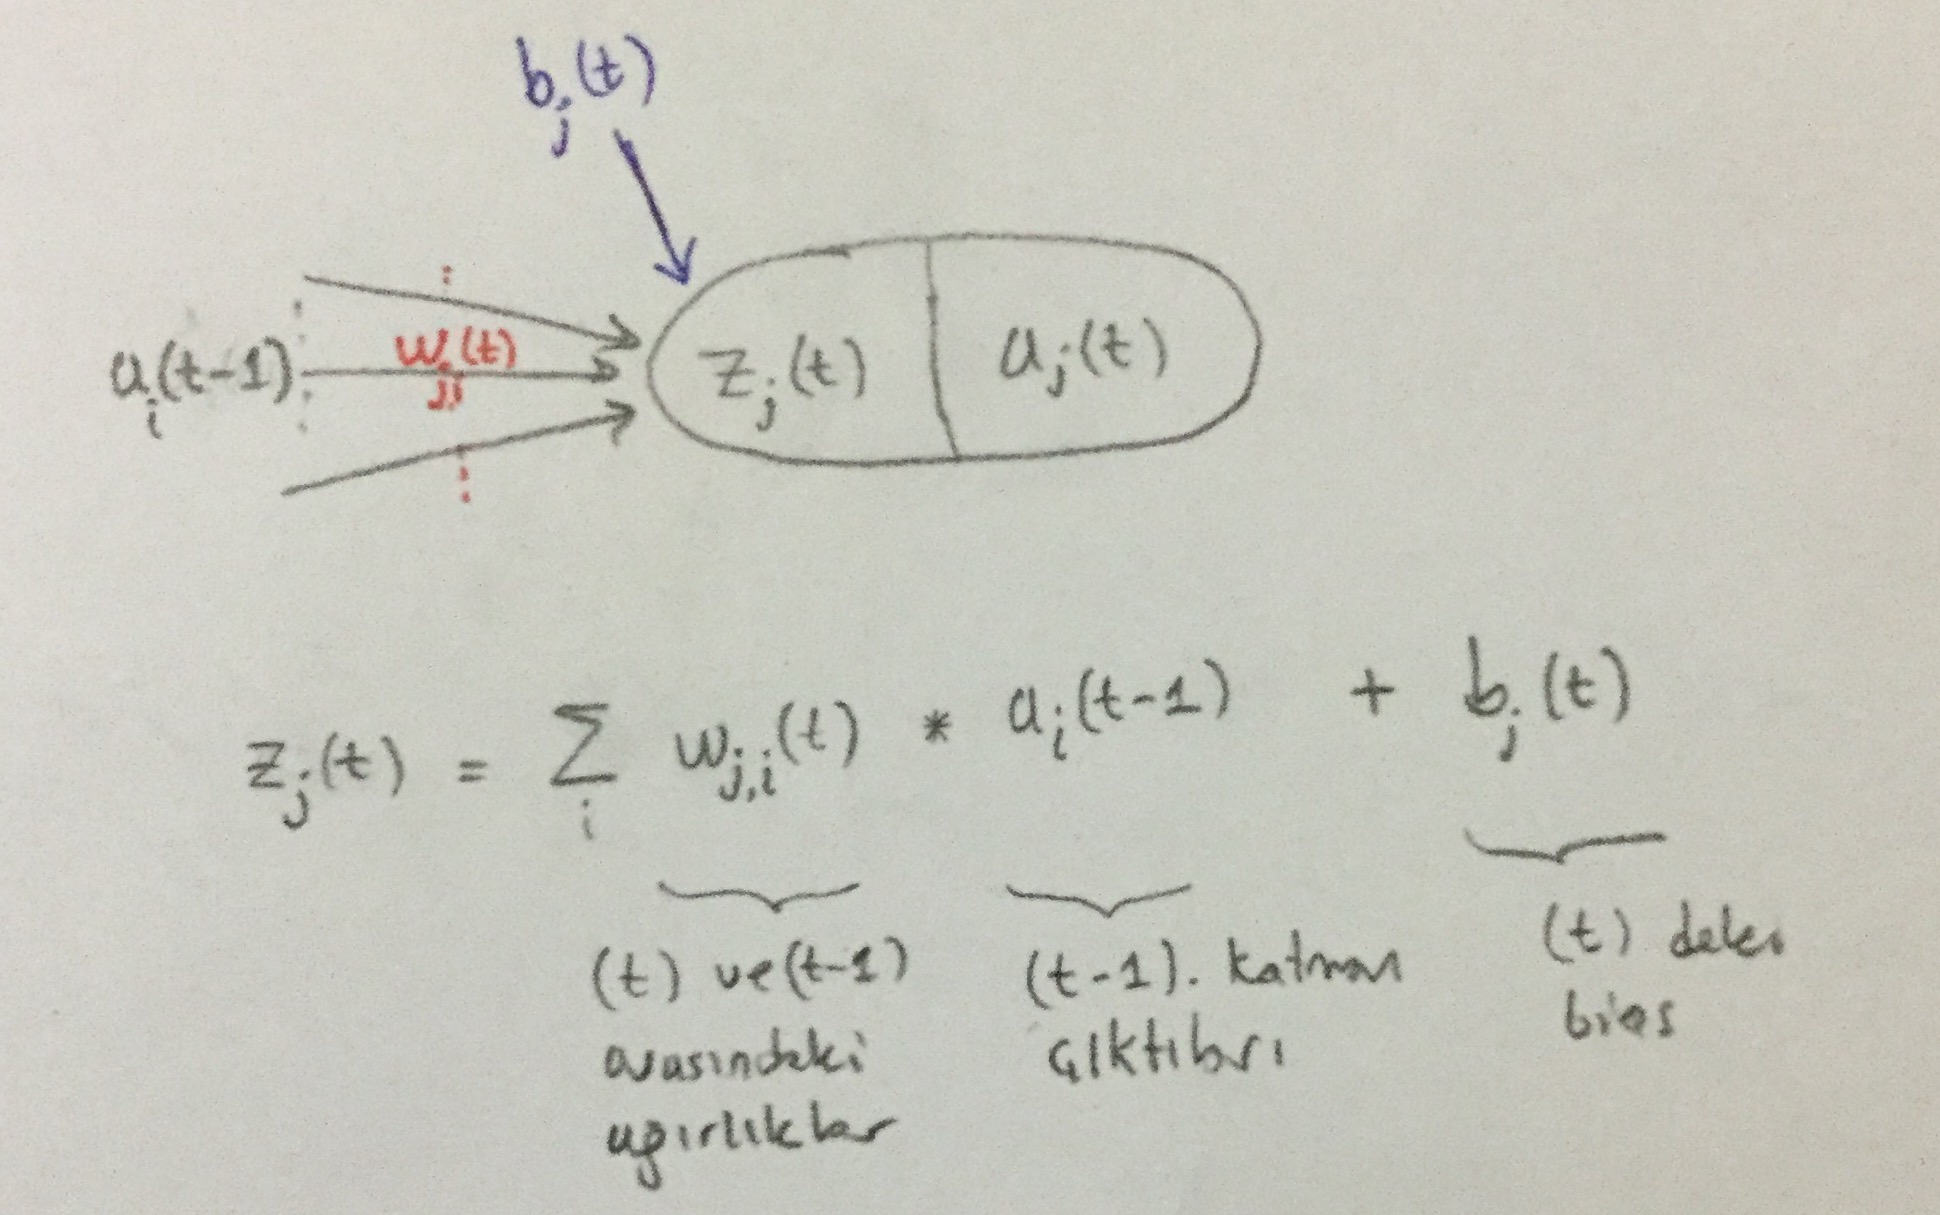 b_j(t)
a_i(t-1) w_ji(t) z_j(t) a_j(t)
z_j(t) = Σ_i w_j,i(t) * a_i(t-1) + b_j(t)
(t) ve (t-1)
arasındaki
ağırlıklar
(t-1). katman
çıktıları
(t) deki
bias